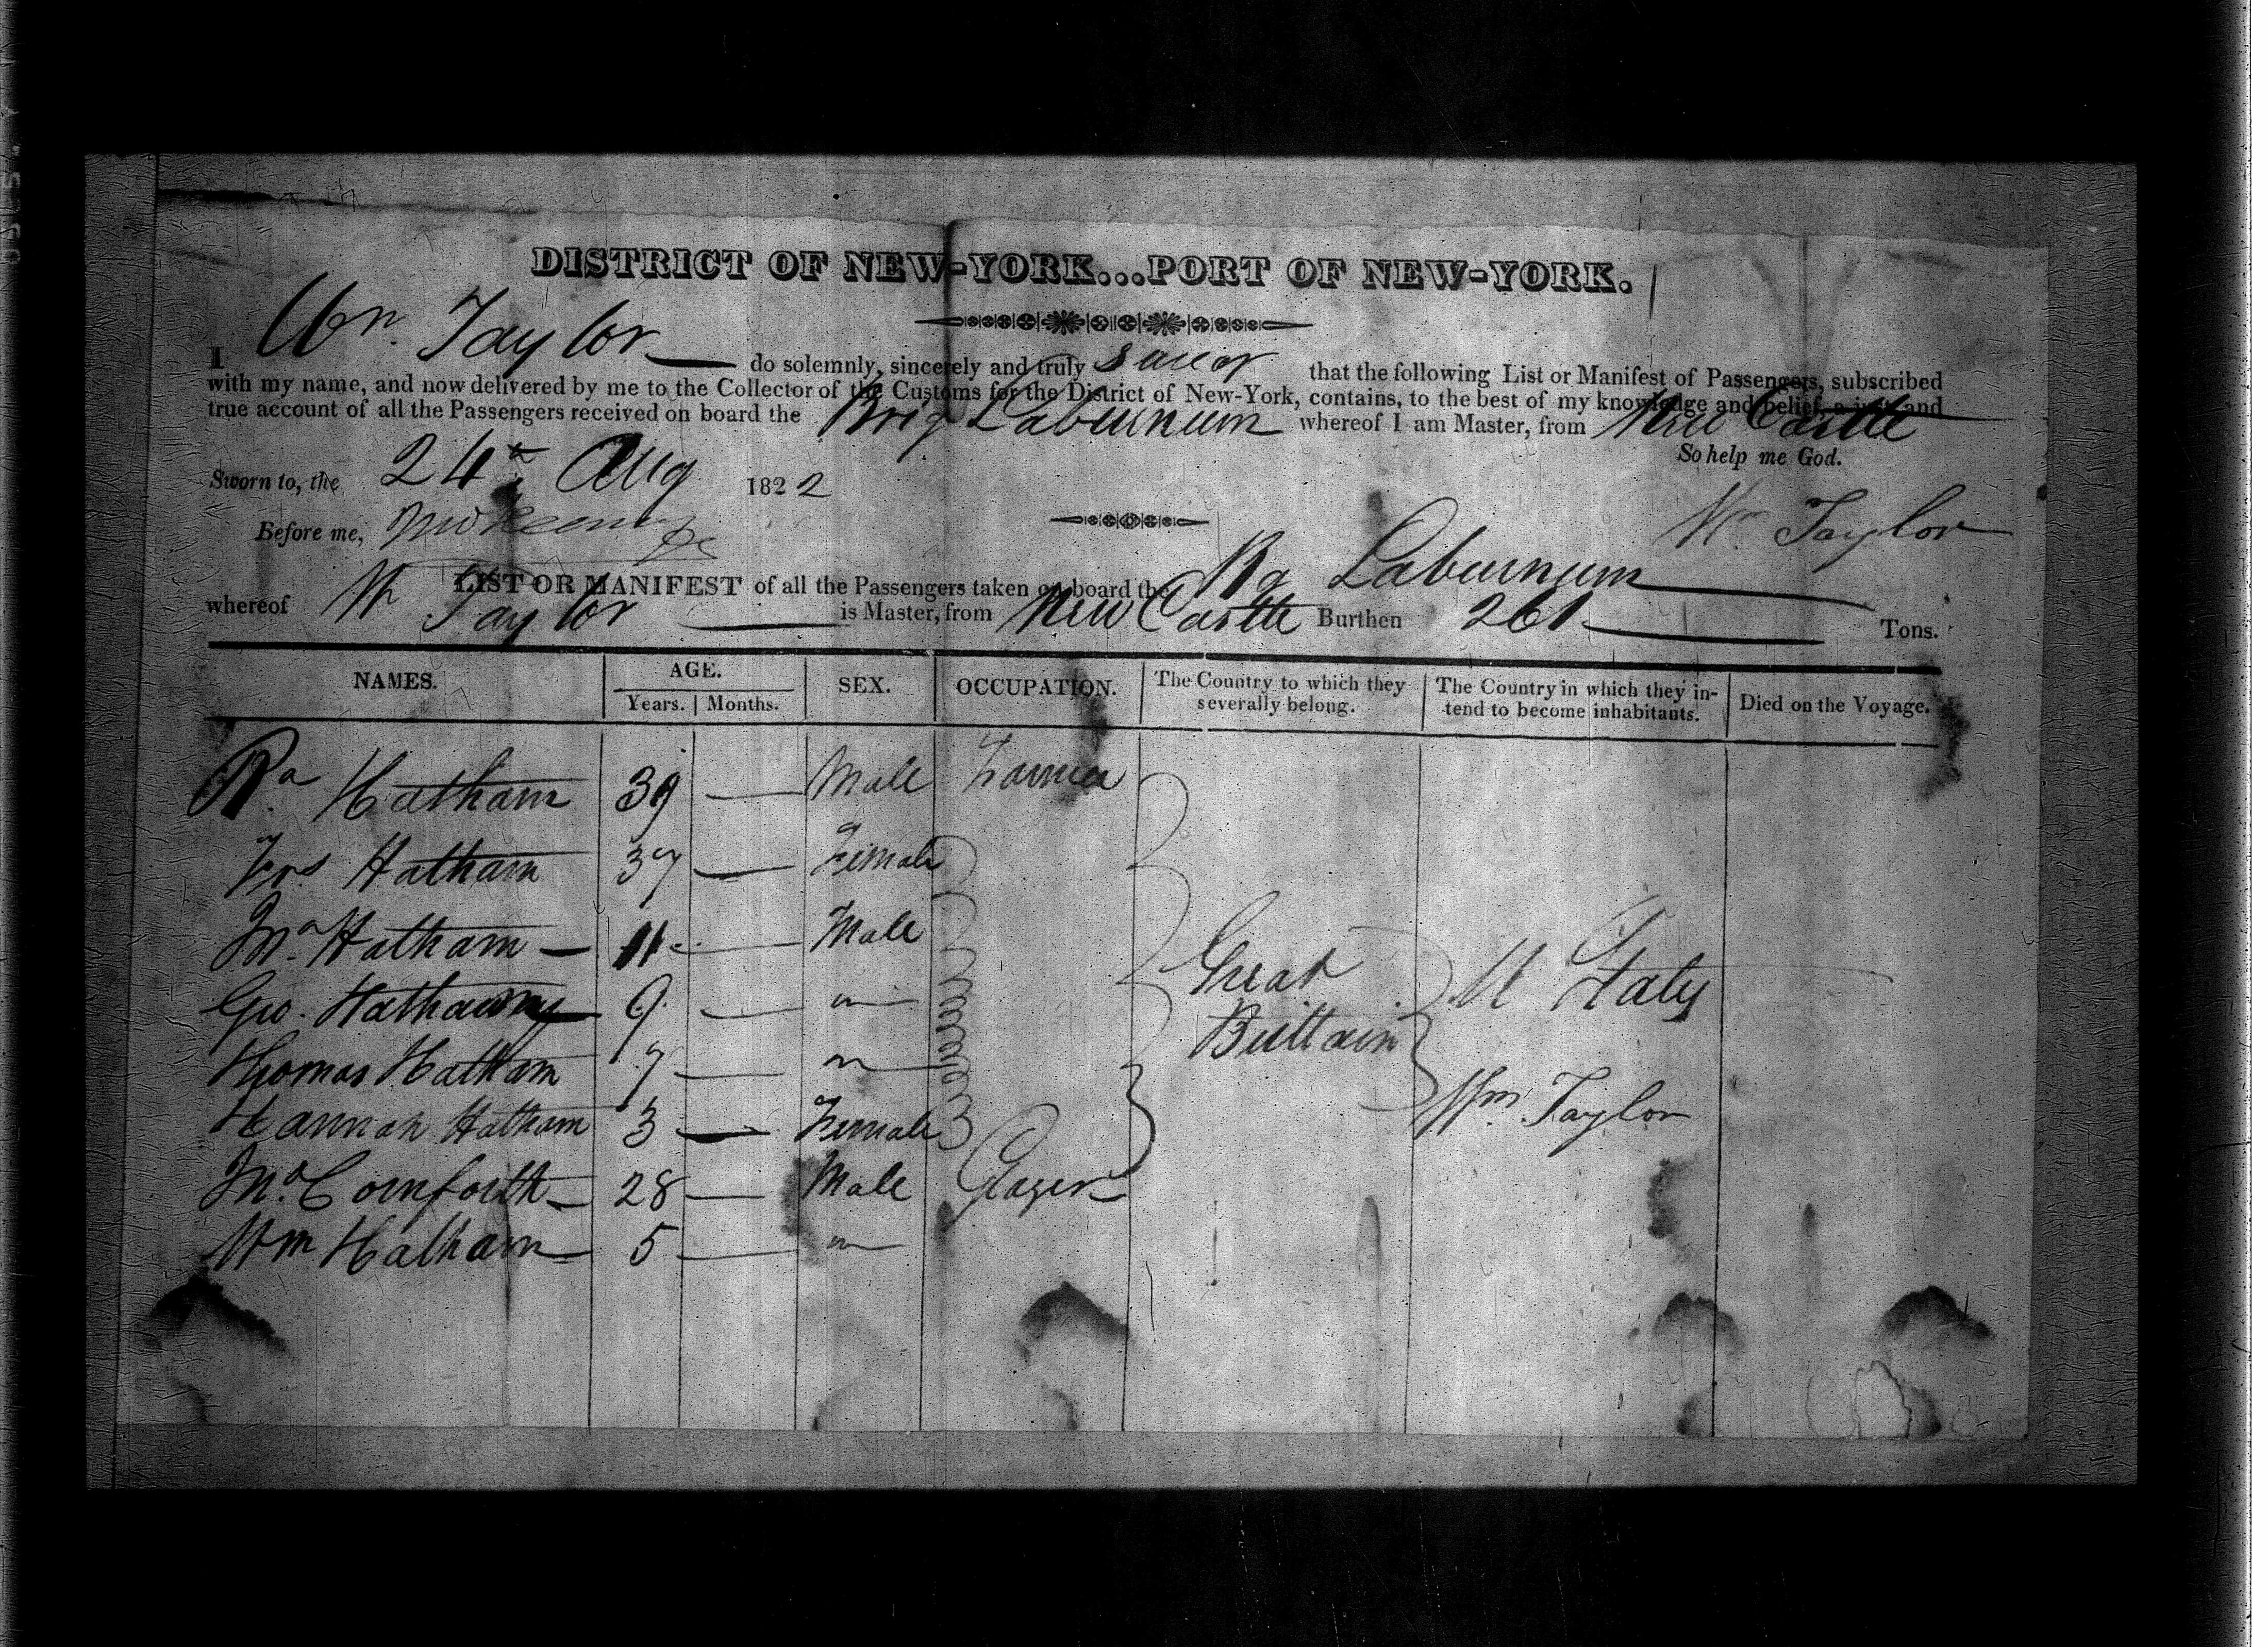 DISTRICT OF NEW-YORK...PORT OF NEW-YORK.
I Wm. Taylor do solemnly, sincerely and truly swear that the following List or Manifest of Passengers, subscribed
with my name, and now delivered by me to the Collector of the Customs for the District of New-York, contains, to the best of my knowledge and belief, a just and
true account of all the Passengers received on board the Brig Laburnum whereof I am Master, from New Castle
So help me God.
Sworn to, the 24th Aug 1822
Before me,
Wm Taylor
LIST OR MANIFEST of all the Passengers taken on board the Bg Laburnum
whereof W Taylor is Master, from New Castle Burthen 261 Tons.
NAMES. AGE. SEX. OCCUPATION. The Country to which they severally belong. The Country in which they intend to become inhabitants. Died on the Voyage.
Years. Months.
Ra Hatham 39 — Male Farmer
Frs Hatham 37 — Female
Jno. Hatham — 11 — Male
Geo. Hatham 9 — "
Thomas Hatham 7 — "
Hannah Hatham 3 — Female
Jno. Cornforth — 28 — Male Glazier
Wm Hatham 5 — "
Great Brittain
U States
Wm. Taylor